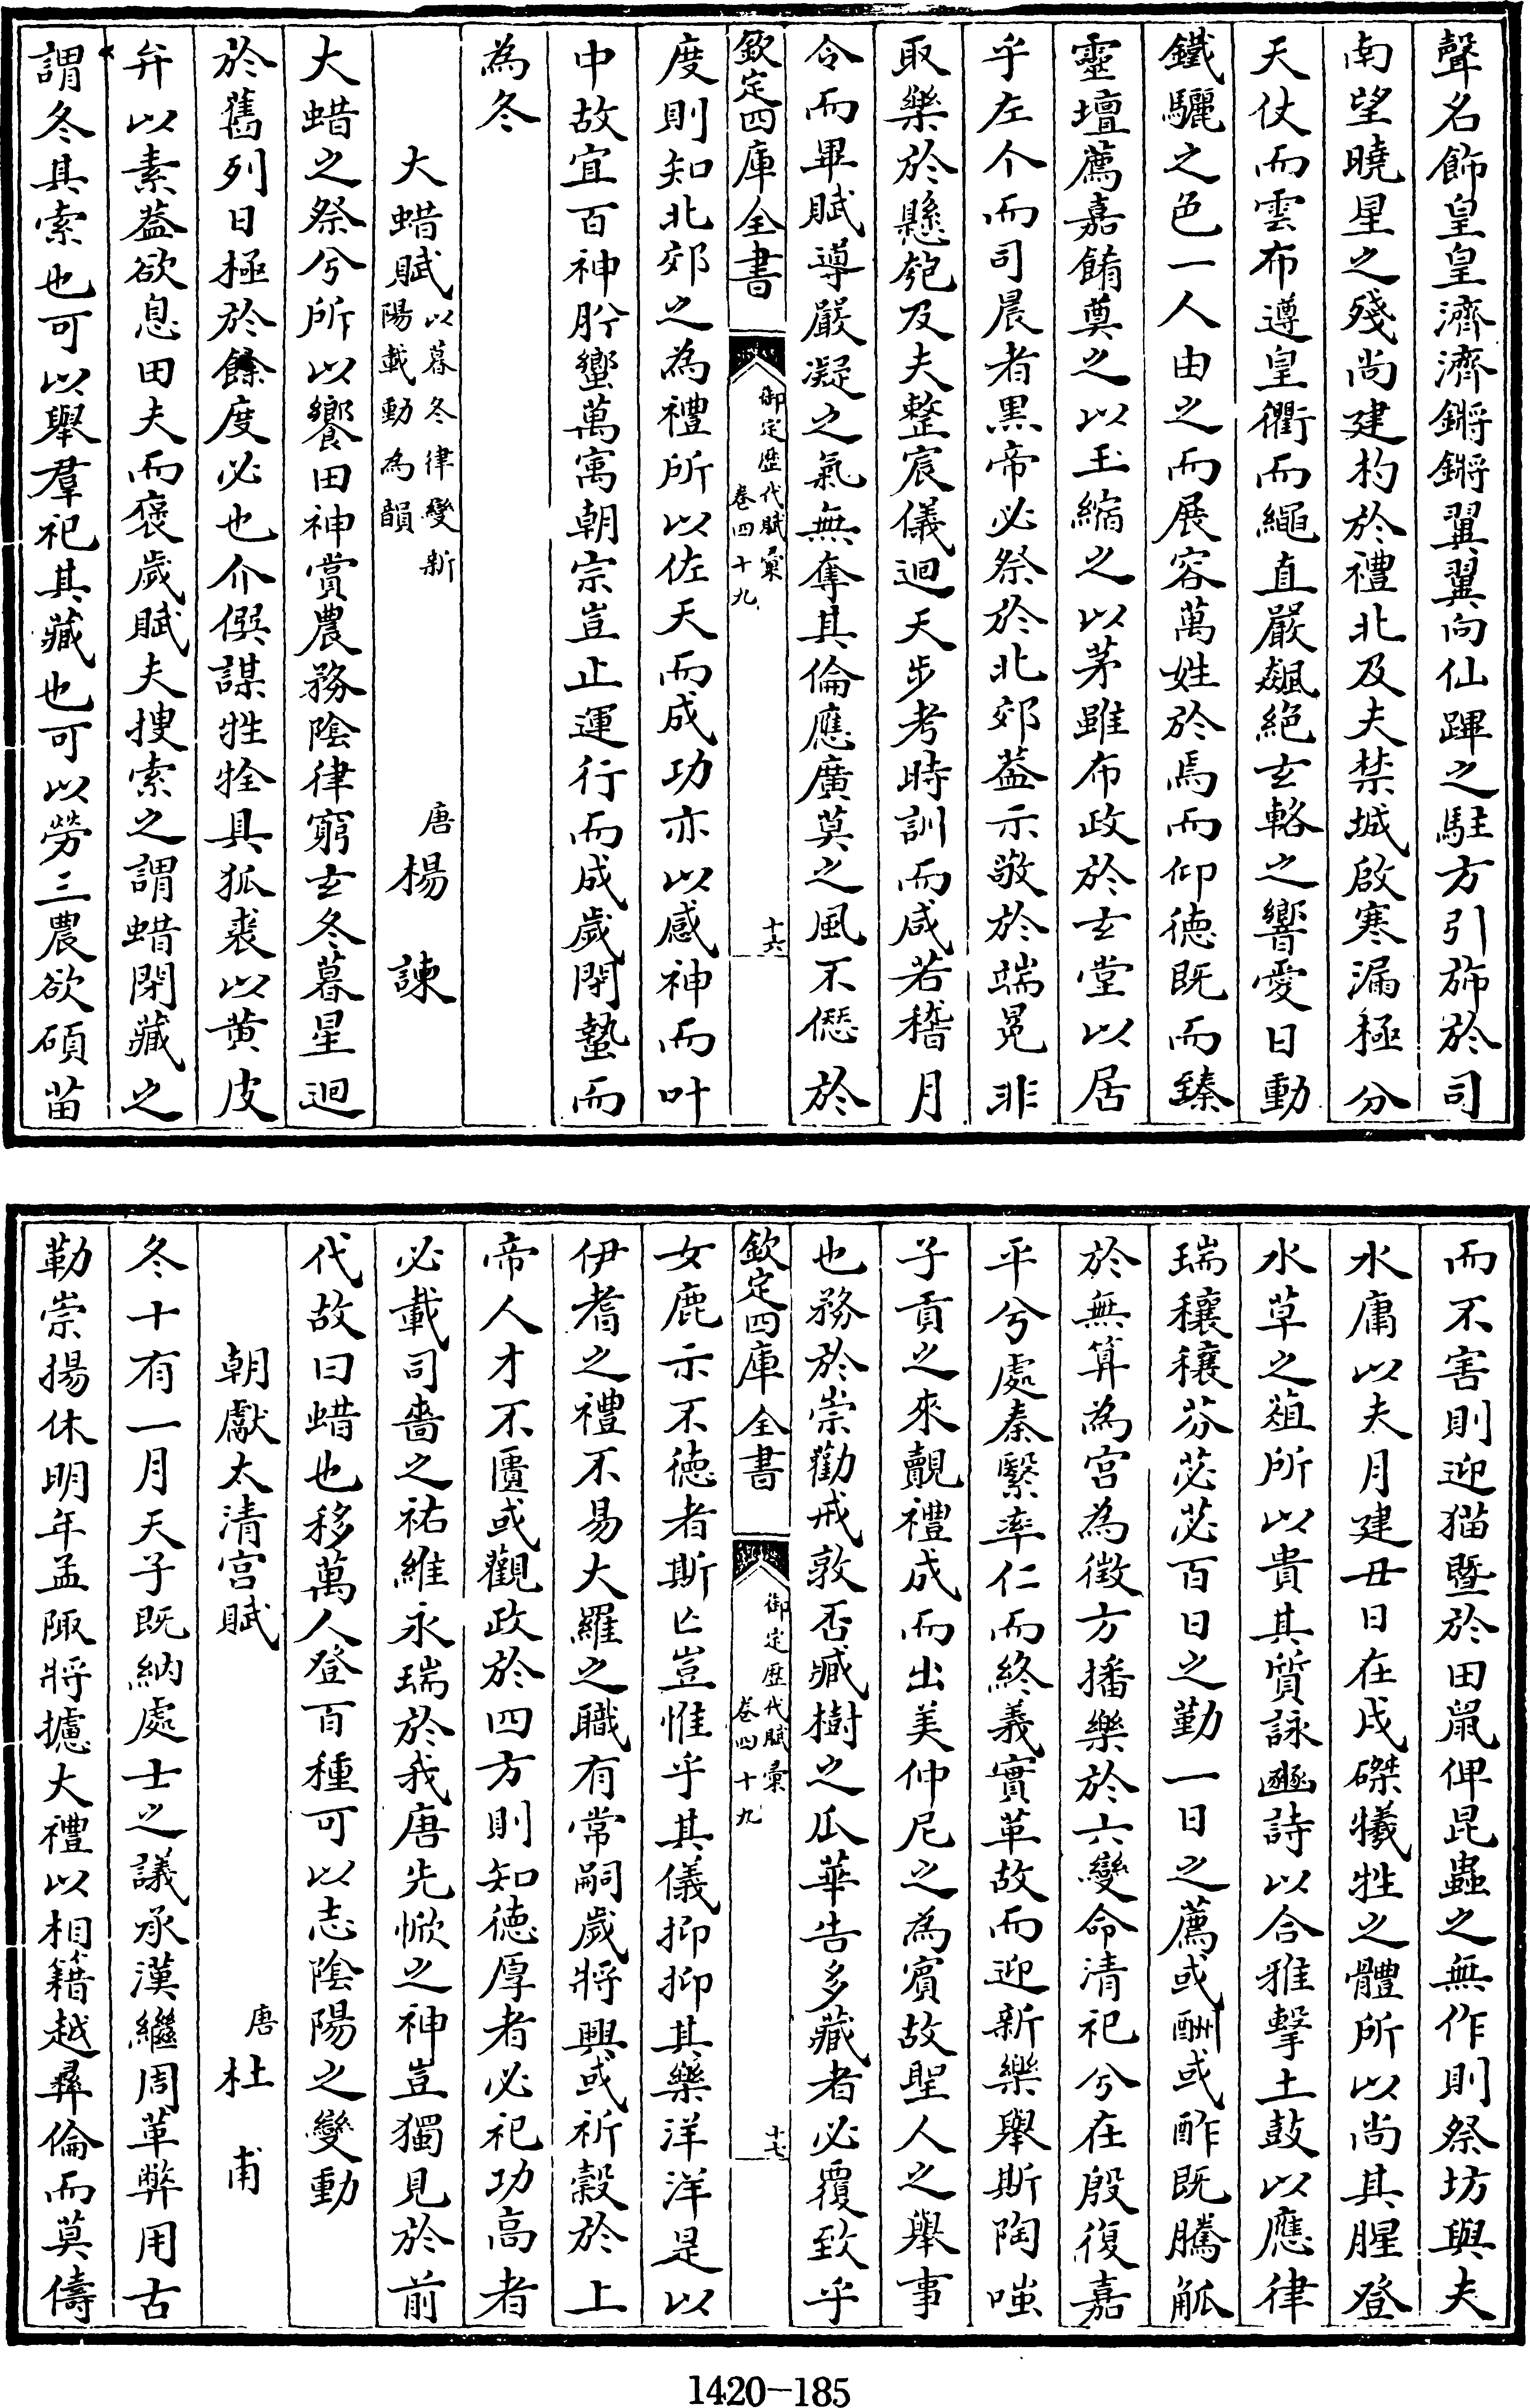 聲名飾皇皇濟濟鏘鏘翼翼向仙蹕之駐方引斾於司
南望曉星之殘尚建杓於禮北及夫禁城啟寒漏極分
天仗而雲布遵皇衢而繩直嚴飇絕玄輅之響愛日動
鐵驪之色一人由之而展容萬姓於焉而仰德既而臻
靈壇薦嘉餚奠之以玉縮之以茅雖布政於玄堂以居
乎左个而司晨者黒帝必祭於北郊葢示敬於端冕非
取樂於懸匏及夫整宸儀迴天步考時訓而咸若稽月
令而畢賦導嚴凝之氣無奪其倫應廣莫之風不愆於
欽定四庫全書
御定歴代賦彙
卷四十九
十六
度則知北郊之為禮所以佐天而成功亦以感神而叶
中故宜百神肸蠁萬寓朝宗豈止運行而成歲閉蟄而
為冬
大蜡賦以暮冬律變新
陽載動為韻
唐楊諫
大蜡之祭兮所以饗田神賞農務陰律窮玄冬暮星迴
於舊列日極於餘度必也介僎謀牲牷具狐裘以黄皮
弁以素葢欲息田夫而褒歲賦夫搜索之謂蜡閉藏之
謂冬其索也可以舉羣祀其藏也可以勞三農欲碩苗
而不害則迎猫暨於田鼠俾昆蟲之無作則祭坊與夫
水庸以夫月建丑日在戌磔犧牲之體所以尚其腥登
水草之葅所以貴其質詠豳詩以合雅擊土鼓以應律
瑞穰穰芬苾苾百日之勤一日之薦或酬或酢既騰觚
於無算為宫為徴方播樂於六變命清祀兮在殷復嘉
平兮處秦繄率仁而終義實革故而迎新樂舉斯陶嗤
子貢之來觀禮成而出美仲尼之為賓故聖人之舉事
也務於崇勸戒敦否臧樹之瓜華告多藏者必覆致乎
欽定四庫全書
御定歴代賦彙
卷四十九
十七
女鹿示不徳者斯亡豈惟乎其儀抑抑其樂洋洋是以
伊耆之禮不易大羅之職有常嗣歲將興或祈穀於上
帝人才不匱或觀政於四方則知徳厚者必祀功高者
必載司嗇之祐維永瑞於我唐先愆之神豈獨見於前
代故曰蜡也移萬人登百種可以志陰陽之變動
朝獻太清宫賦
唐杜甫
冬十有一月天子既納處士之議承漢繼周革弊用古
勒崇揚休明年孟陬將攄大禮以相籍越彞倫而莫儔
1420-185